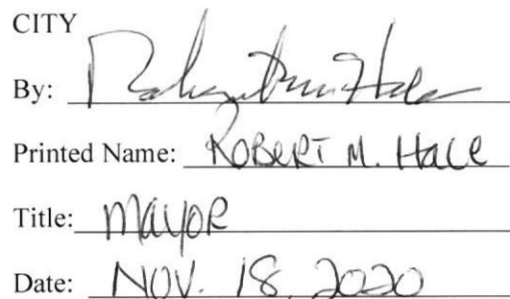 CITY
By: Robert M Hale
Printed Name: ROBERT M. HALE
Title: MAYOR
Date: NOV. 18, 2020